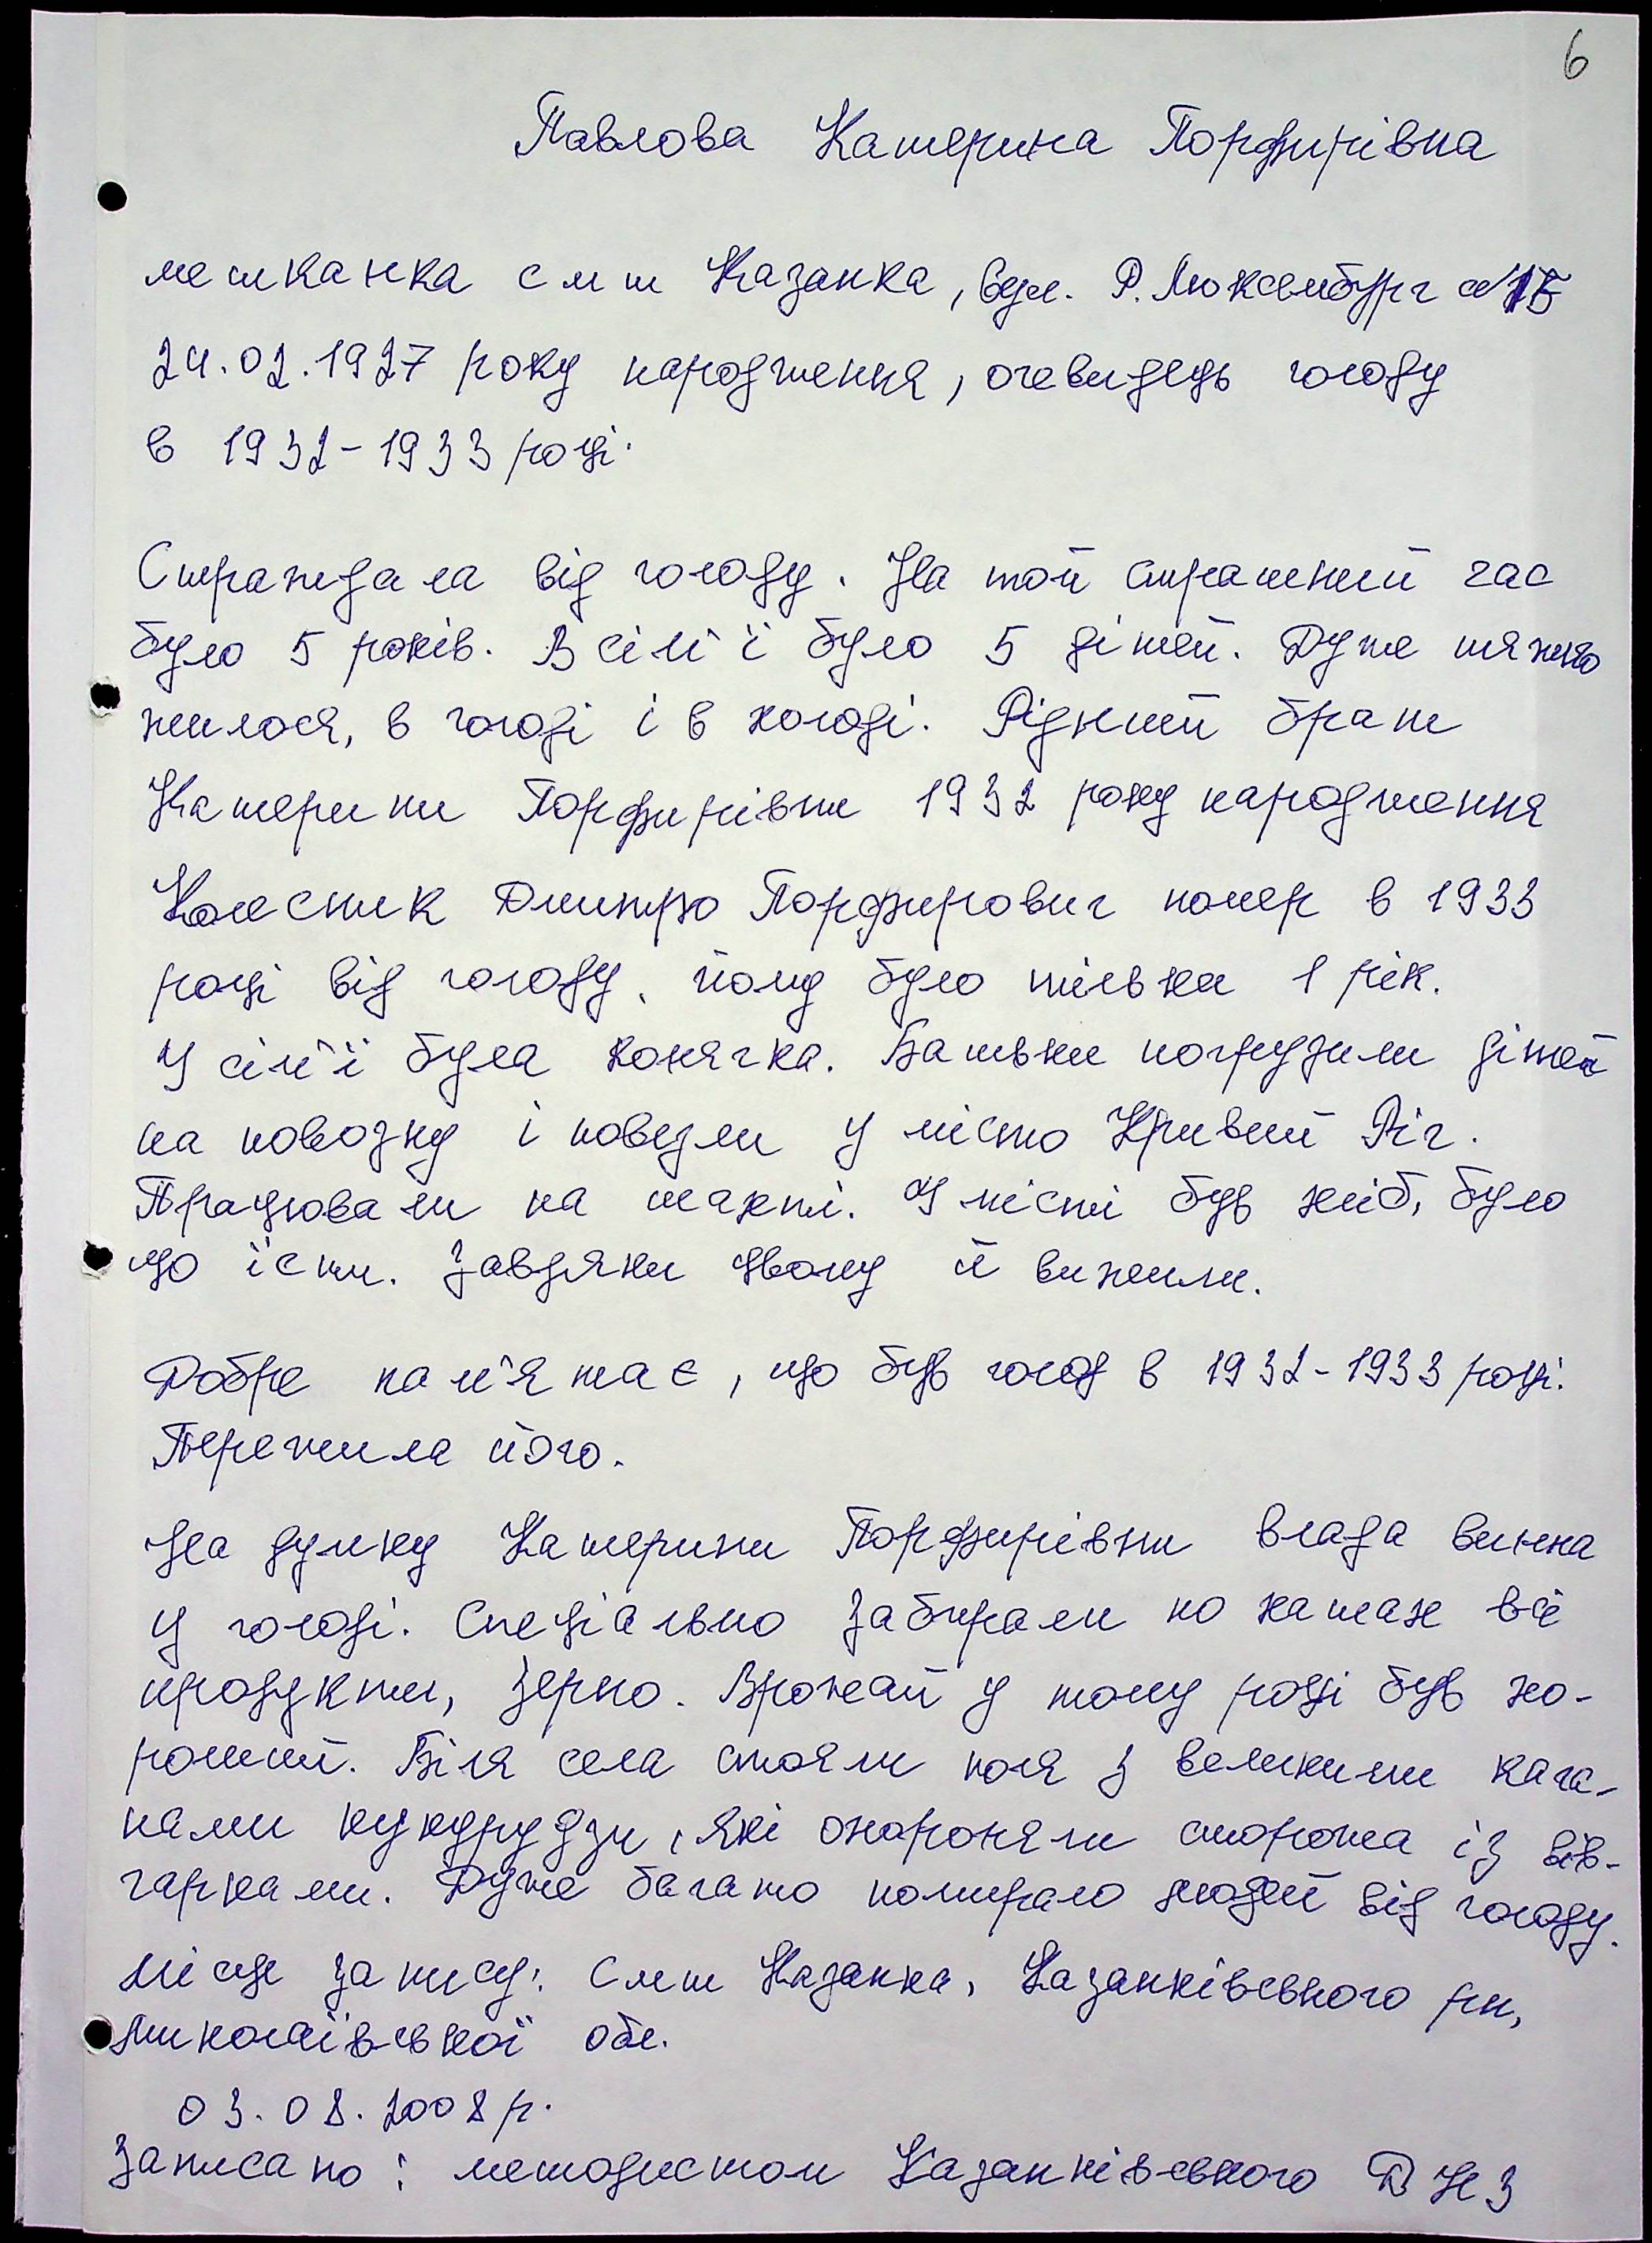 6
Павлова Катерина Порфирівна
мешканка смт Казанка, вул. Р. Люксембург №15
24.02.1927 року народження, очевидець голоду
в 1932-1933 році.
Страждала від голоду. На той страшний час
було 5 років. В сім'ї було 5 дітей. Дуже тяжко
жилося, в голоді і в холоді. Рідний брат
Катерини Порфирівни 1932 року народження
Колесник Дмитро Порфирович помер в 1933
році від голоду, йому було тільки 1 рік.
У сім'ї була конячка. Батьки погрузили дітей
на повозку і повезли у місто Кривий Ріг.
Працювали на шахті. У місті був хліб, було
що їсти. Завдяки цьому й вижили.
Добре пам'ятає, що був голод в 1932-1933 році.
Пережила його.
На думку Катерини Порфирівни влада винна
у голоді. Спеціально забирали по хатах всі
продукти, зерно. Врожай у тому році був хо-
роший. Біля села стояли поля з великими кача-
нами кукурудзи, які охороняли сторожа із вів-
чарками. Дуже багато помирало людей від голоду.
Місце запису: смт Казанка, Казанківського рн,
Миколаївської обл.
03.08.2008 р.
Записано: методистом Казанківського ДНЗ